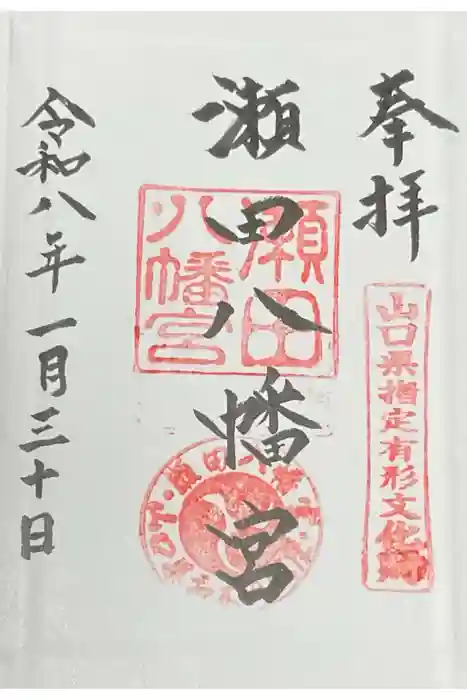 奉拝
山口県指定有形文化財
瀬田八幡宮
瀬田
八幡宮
令和八年一月三十日